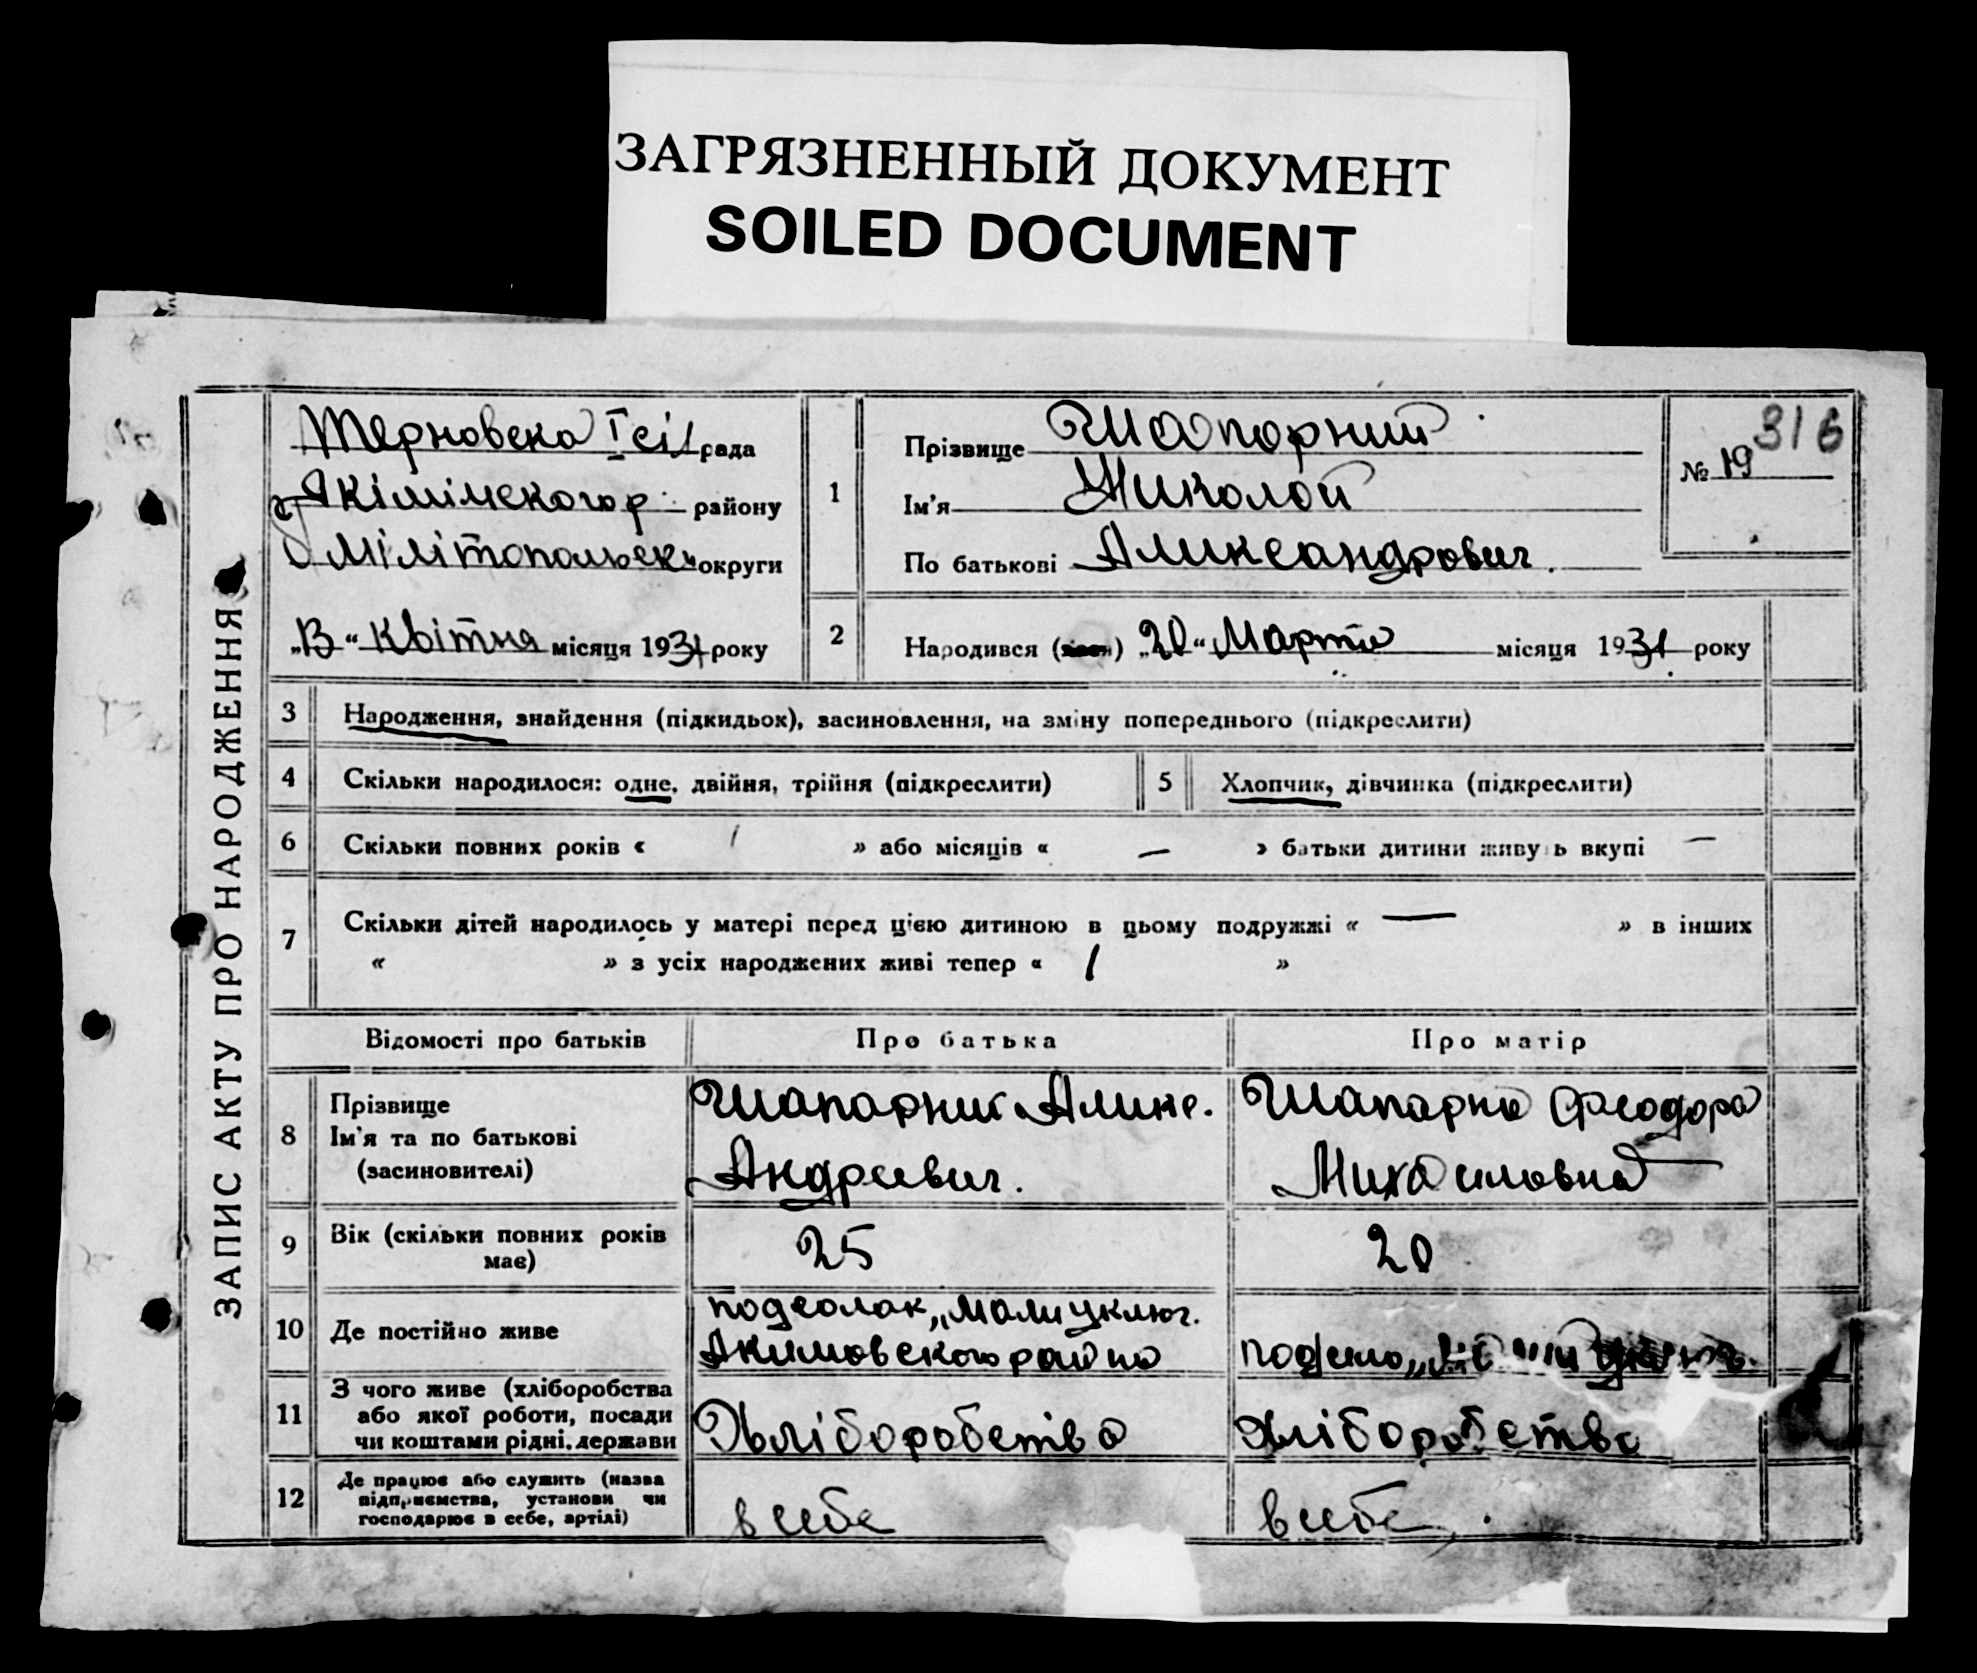 ЗАГРЯЗНЕННЫЙ ДОКУМЕНТ
SOILED DOCUMENT
ЗАПИС АКТУ ПРО НАРОДЖЕННЯ
Терновска І сіл рада
Якімімского р. району
Мілітопольск округи
„13“ Квітня місяця 1931 року
1
Прізвище Шапорний
Ім'я Николай
По батькові Александрович.
№ 19
316
2
Народився (лася) „20“ Марта місяця 1931 року
3 Народження, знайдення (підкидьох), засиновлення, на зміну попереднього (підкреслити)
4 Скільки народилося: одне, двійня, трійня (підкреслити) 5 Хлопчик, дівчинка (підкреслити)
6 Скільки повних років « 1 » або місяців « — » батьки дитини живуть вкупі —
7 Скільки дітей народилось у матері перед цією дитиною в цьому подружжі « — » в інших
« » з усіх народжених живі тепер « 1 »
Відомості про батьків Про батька Про матір
8
Прізвище
Ім'я та по батькові
(засиновителі)
Шапарний Аликс.
Андреевич.
Шапарна Феодора
Михаиловна
9 Вік (скільки повних років
має)
25
20
10 Де постійно живе
подсолак „Мали Уклюг.
Акимовского району
11 З чого живе (хліборобства
або якої роботи, посади
чи коштами рідні, держави
Хліборобство
Хліборобство
12 Де працює або служить (назва
підприємства, установи чи
господарює в себе, артілі)
в себе
в себе